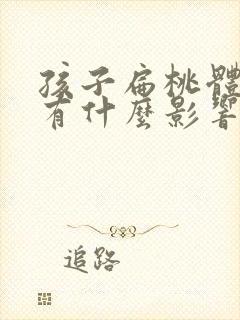 孩子扁桃體
有什麼影響
追路